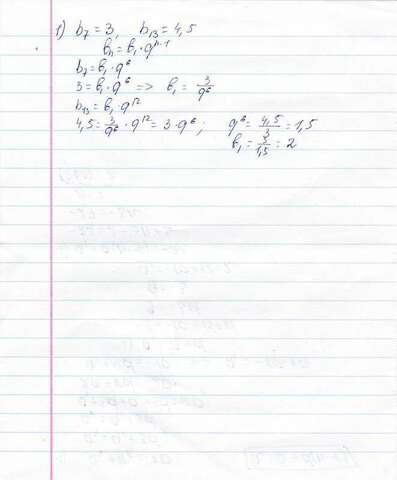 1) b₇ = 3, b₁₃ = 4,5
bₙ = b₁ · qⁿ⁻¹
b₇ = b₁ · q⁶
3 = b₁ · q⁶ => b₁ = 3/q⁶
b₁₃ = b₁ · q¹²
4,5 = 3/q⁶ · q¹² = 3 · q⁶; q⁶ = 4,5/3 = 1,5
b₁ = 3/1,5 = 2